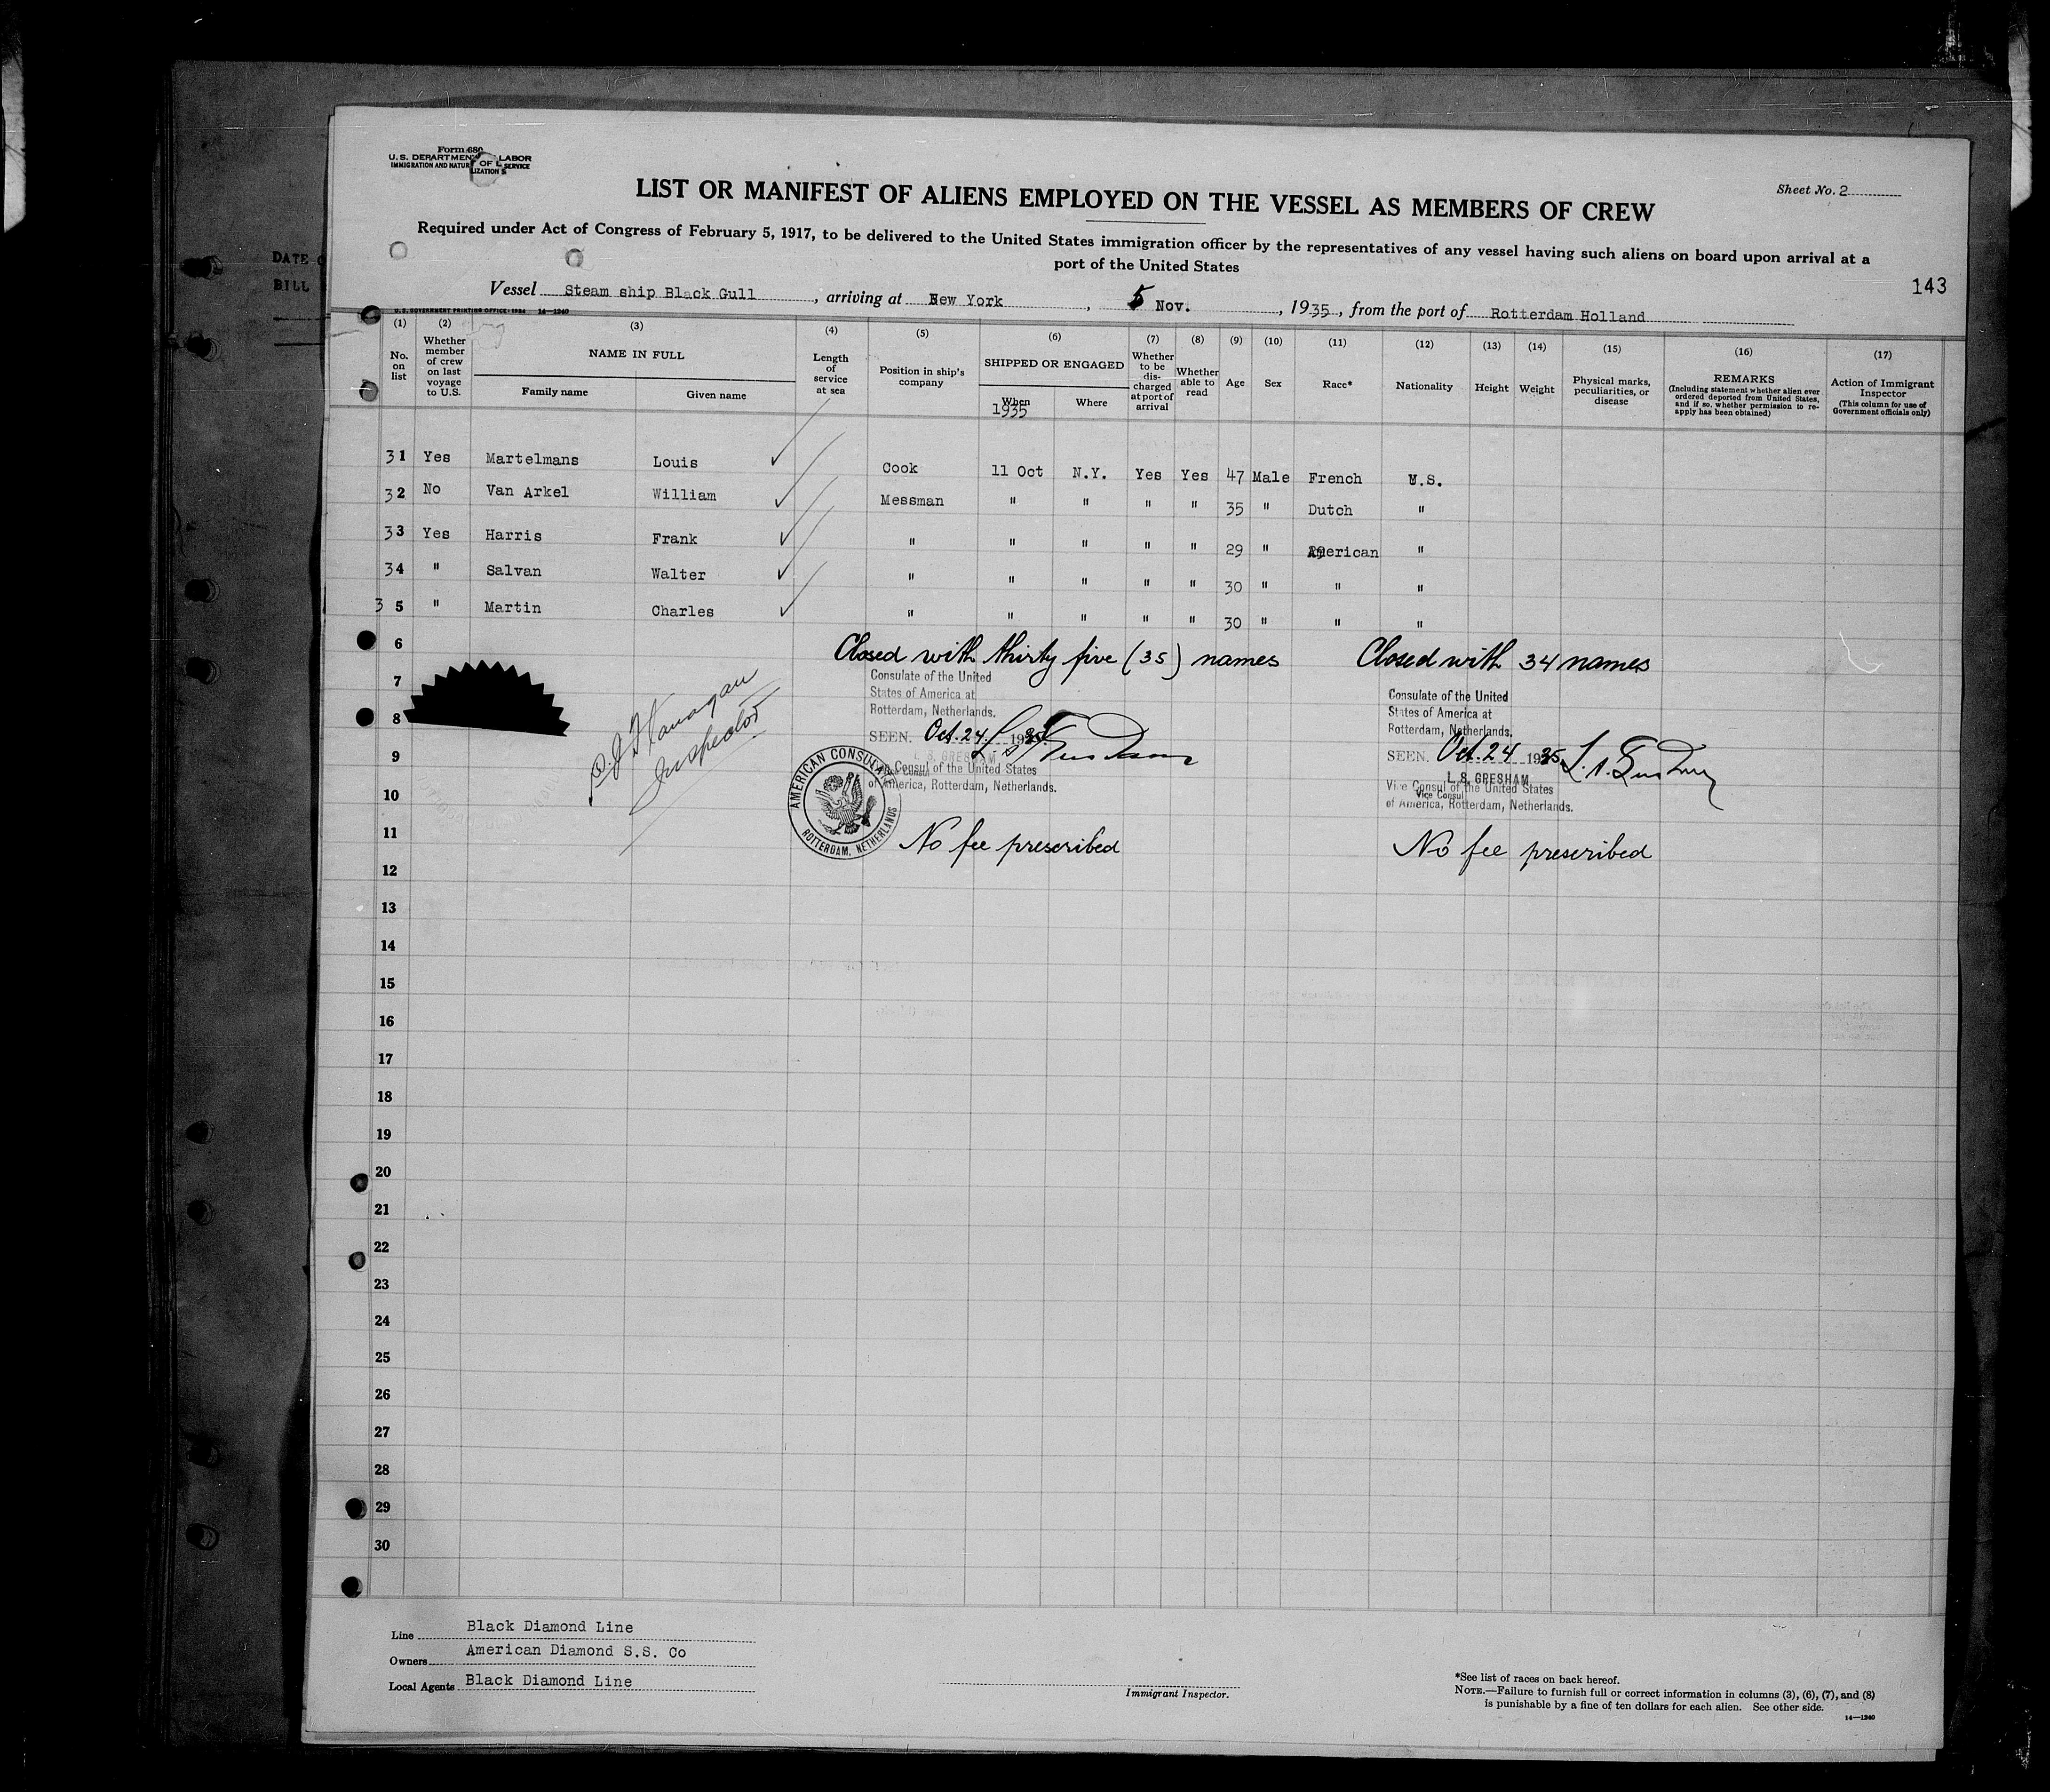 Form 680
U.S. DEPARTMENT OF LABOR
IMMIGRATION AND NATURALIZATION SERVICE
Sheet No. 2
LIST OR MANIFEST OF ALIENS EMPLOYED ON THE VESSEL AS MEMBERS OF CREW
Required under Act of Congress of February 5, 1917, to be delivered to the United States immigration officer by the representatives of any vessel having such aliens on board upon arrival at a
port of the United States
143
DATE
BILL
Vessel Steam ship Black Gull, arriving at New York, 5 Nov., 1935, from the port of Rotterdam Holland
U.S. GOVERNMENT PRINTING OFFICE: 1934 14—1240
(1) (2) (3) (4) (5) (6) (7) (8) (9) (10) (11) (12) (13) (14) (15) (16) (17)
No. on list
Whether member of crew on last voyage to U.S.
NAME IN FULL
Family name
Given name
Length of service at sea
Position in ship's company
SHIPPED OR ENGAGED
When
1935
Where
Whether to be discharged at port of arrival
Whether able to read
Age
Sex
Race*
Nationality
Height
Weight
Physical marks, peculiarities, or disease
REMARKS
(Including statement whether alien ever ordered deported from United States, and if so, whether permission to reapply has been obtained)
Action of Immigrant Inspector
(This column for use of Government officials only)
31 Yes Martelmans Louis ✓ Cook 11 Oct N.Y. Yes Yes 47 Male French U.S.
32 No Van Arkel William ✓ Messman " " " " 35 " Dutch "
33 Yes Harris Frank ✓ " " " " " 29 " American "
34 " Salvan Walter ✓ " " " " " 30 " " "
35 " Martin Charles ✓ " " " " " 30 " " "
6
Closed with thirty five (35) names
Closed with 34 names
7
8
9
10
11
12
13
14
15
16
17
18
19
20
21
22
23
24
25
26
27
28
29
30
Inspector
Consulate of the United
States of America at
Rotterdam, Netherlands.
SEEN. Oct. 24 1935
L. S. GRESHAM
Consul of the United States
of America, Rotterdam, Netherlands.
AMERICAN CONSULATE
ROTTERDAM, NETHERLANDS
No fee prescribed
Consulate of the United
States of America at
Rotterdam, Netherlands.
SEEN. Oct. 24 1935
L. S. GRESHAM
Vice Consul of the United States
Vice Consul
of America, Rotterdam, Netherlands.
No fee prescribed
Line Black Diamond Line
Owners American Diamond S.S. Co
Local Agents Black Diamond Line
Immigrant Inspector.
*See list of races on back hereof.
NOTE.—Failure to furnish full or correct information in columns (3), (6), (7), and (8)
is punishable by a fine of ten dollars for each alien. See other side.
14—1240